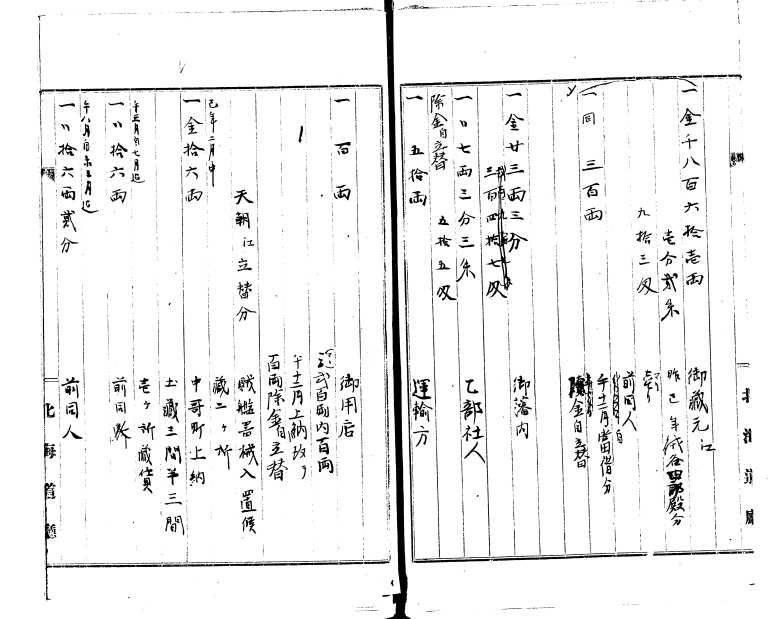 一金千八百六拾壱両
壱分弐朱
御蔵元江
九拾三匁
昨巳年
殿分
前同人
一同 三百両
午十二月当借分
除金自立替
一金廿三両三分
三百四拾七匁
御藩内
一〃七両三分三朱
乙部社人
除金自立替
五拾五匁
一 五拾両
運輸方
北海道庁
一 百両
御用店
弐百両内百両
午十二月上納
百両除金自立替
天朝江立替分
賊艦器械入置候
蔵二ヶ所
巳年二月中
一金拾六両
中哥町上納
土蔵三間半三間
壱ヶ所蔵賃
午三月分七月迄
一〃拾六両
前同断
午八月自未五月迄
一〃拾六両弐分
前同人
北海道庁